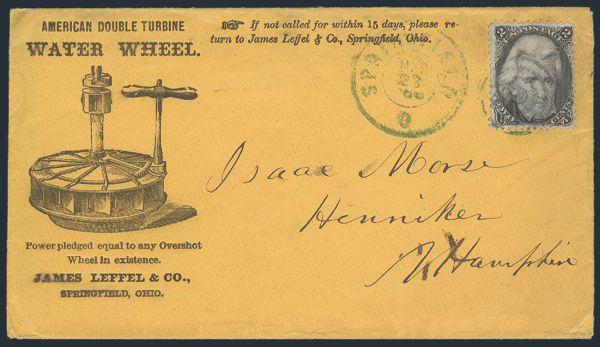 AMERICAN DOUBLE TURBINE
WATER WHEEL.
☞ If not called for within 15 days, please re-
turn to James Leffel & Co., Springfield, Ohio.
SPR
O
2 POSTAGE 2
TWO CENTS
Isaac Morse
Henniker
N. Hampshire
Power pledged equal to any Overshot
Wheel in existence.
JAMES LEFFEL & CO.,
SPRINGFIELD, OHIO.